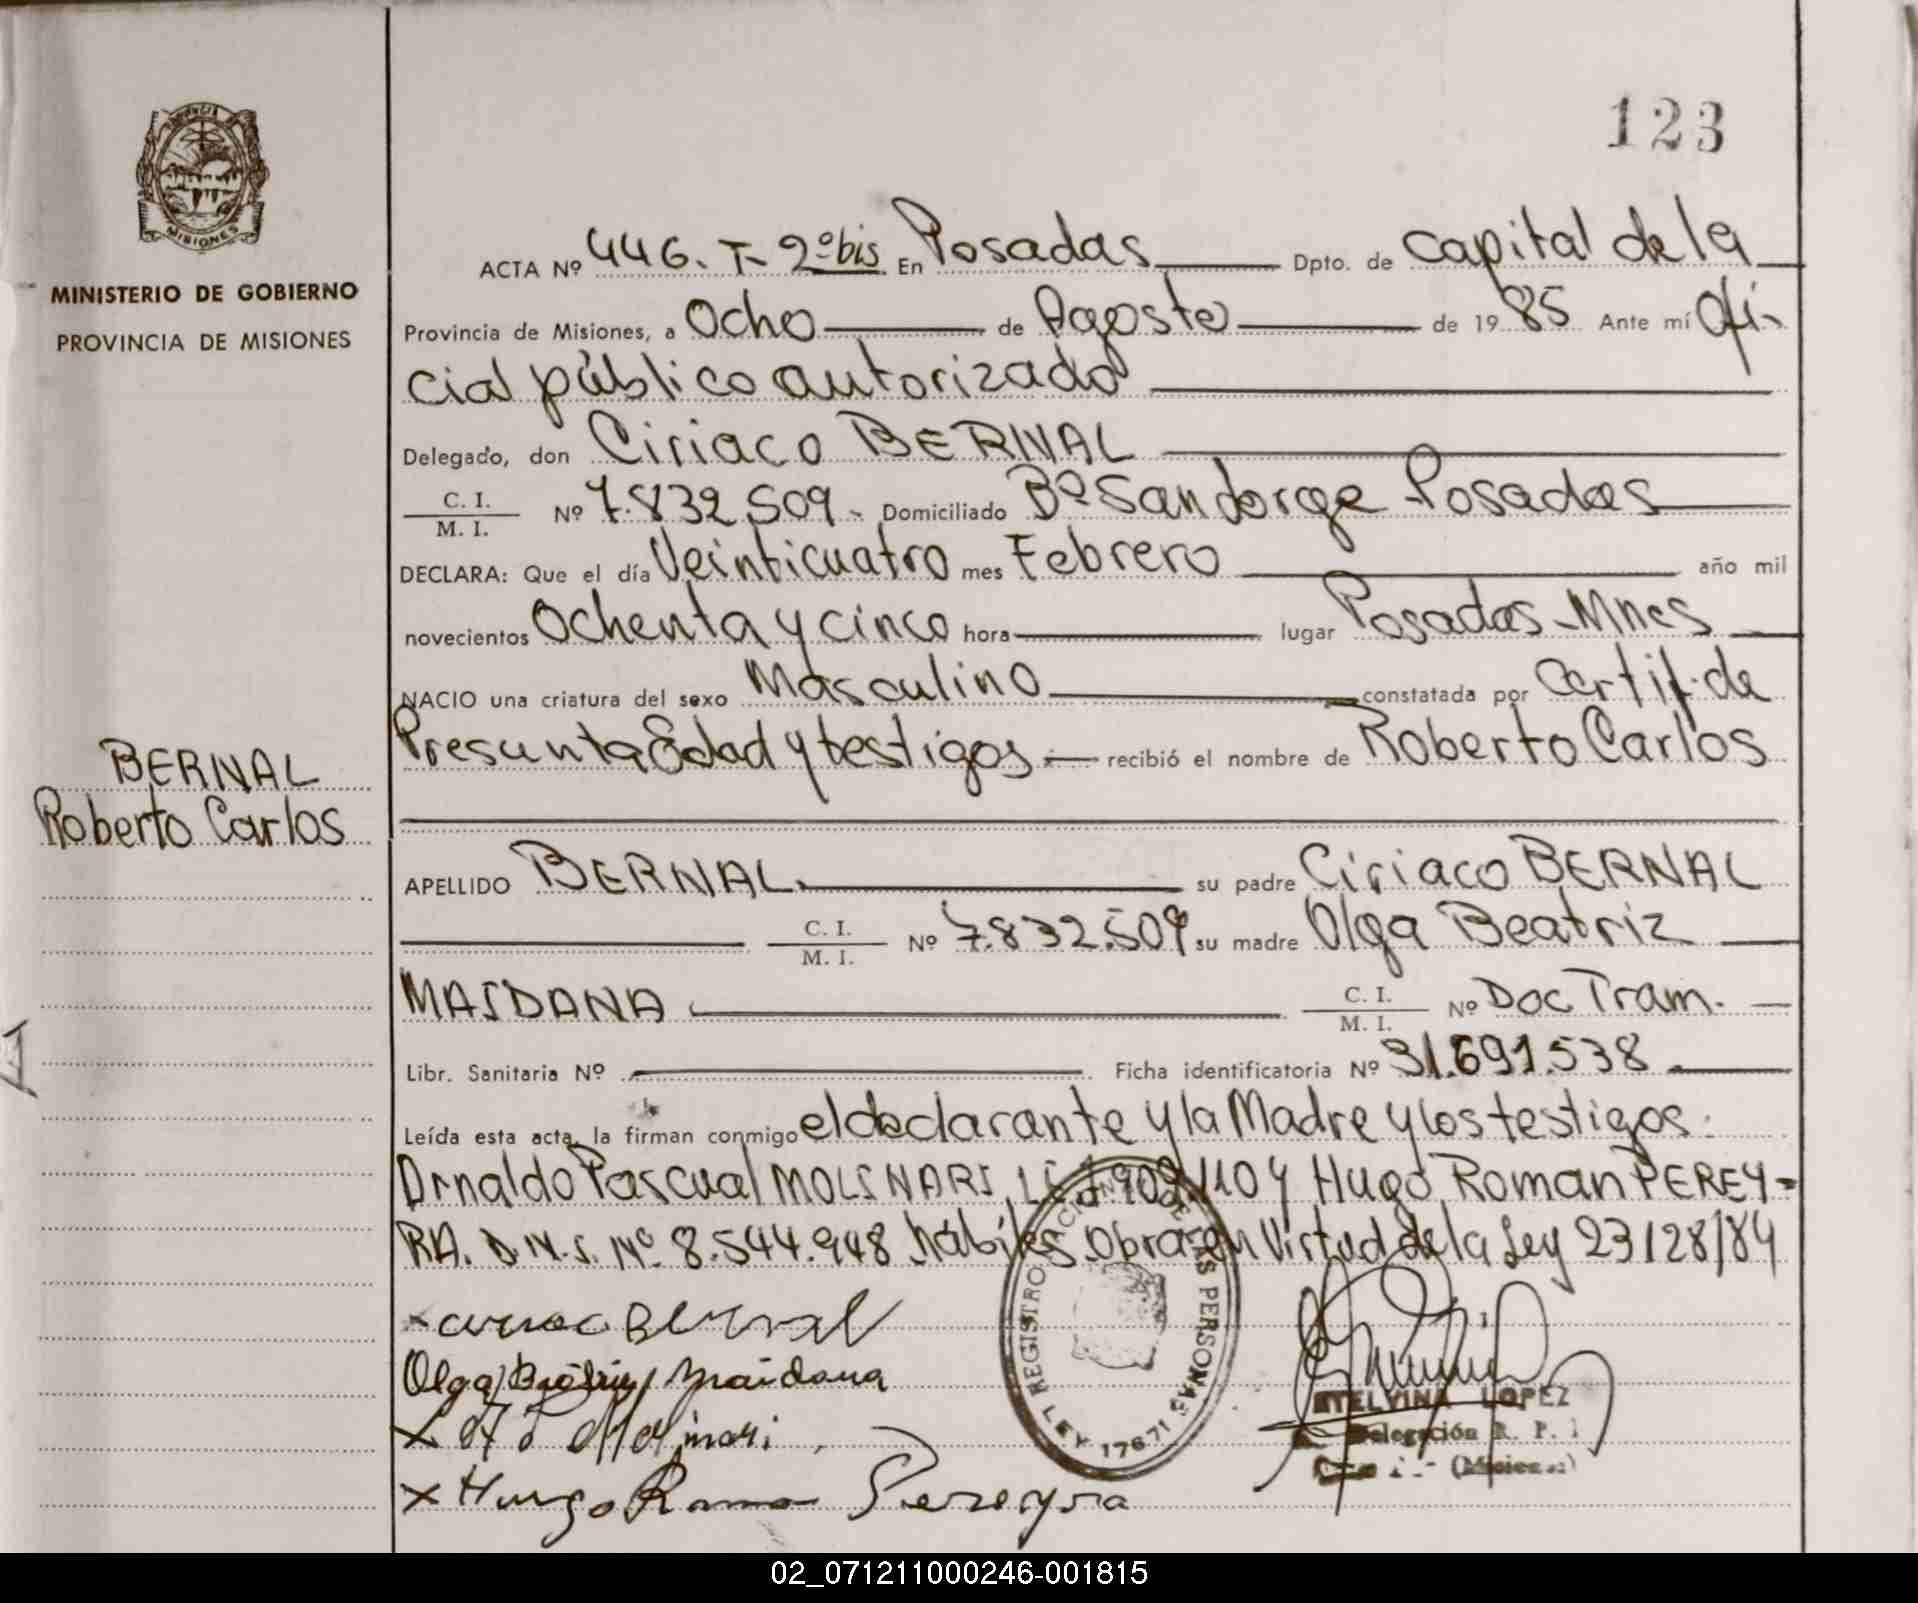 123
PROVINCIA
MISIONES
MINISTERIO DE GOBIERNO
PROVINCIA DE MISIONES
ACTA Nº 446. T- 2º bis En Posadas Dpto. de Capital de la
Provincia de Misiones, a Ocho de Agosto de 1985 Ante mí Ofi-
cial público autorizado
Delegado, don Ciriaco BERNAL
C. I.
M. I. Nº 7.832.509- Domiciliado Bº San Jorge Posadas
DECLARA: Que el día Veinticuatro mes Febrero año mil
novecientos Ochenta y cinco hora lugar Posadas-Mnes
NACIO una criatura del sexo Masculino constatada por Certif. de
Presunta Edad y testigos recibió el nombre de Roberto Carlos
BERNAL
Roberto Carlos
APELLIDO BERNAL su padre Ciriaco BERNAL
C. I.
M. I. Nº 7.832.509 su madre Olga Beatriz
MAIDANA C. I.
M. I. Nº Doc Tram.
Libr. Sanitaria Nº Ficha identificatoria Nº 31.691.538
Leída esta acta, la firman conmigo el declarante y la Madre y los testigos:
Arnaldo Pascual MOLINARI y Hugo Roman PEREY-
RA. D.N.I. Nº 8.544.948 hábiles Obra en Virtud de la Ley 23128/84
Bernal
Olga Beatriz Maidana
Molinari
Hugo Roman Pereyra
REGISTRO NACIONAL DE LAS PERSONAS
LEY 17671
ETELVINA LOPEZ
Delegación R. P.
(Misiones)
02_071211000246-001815